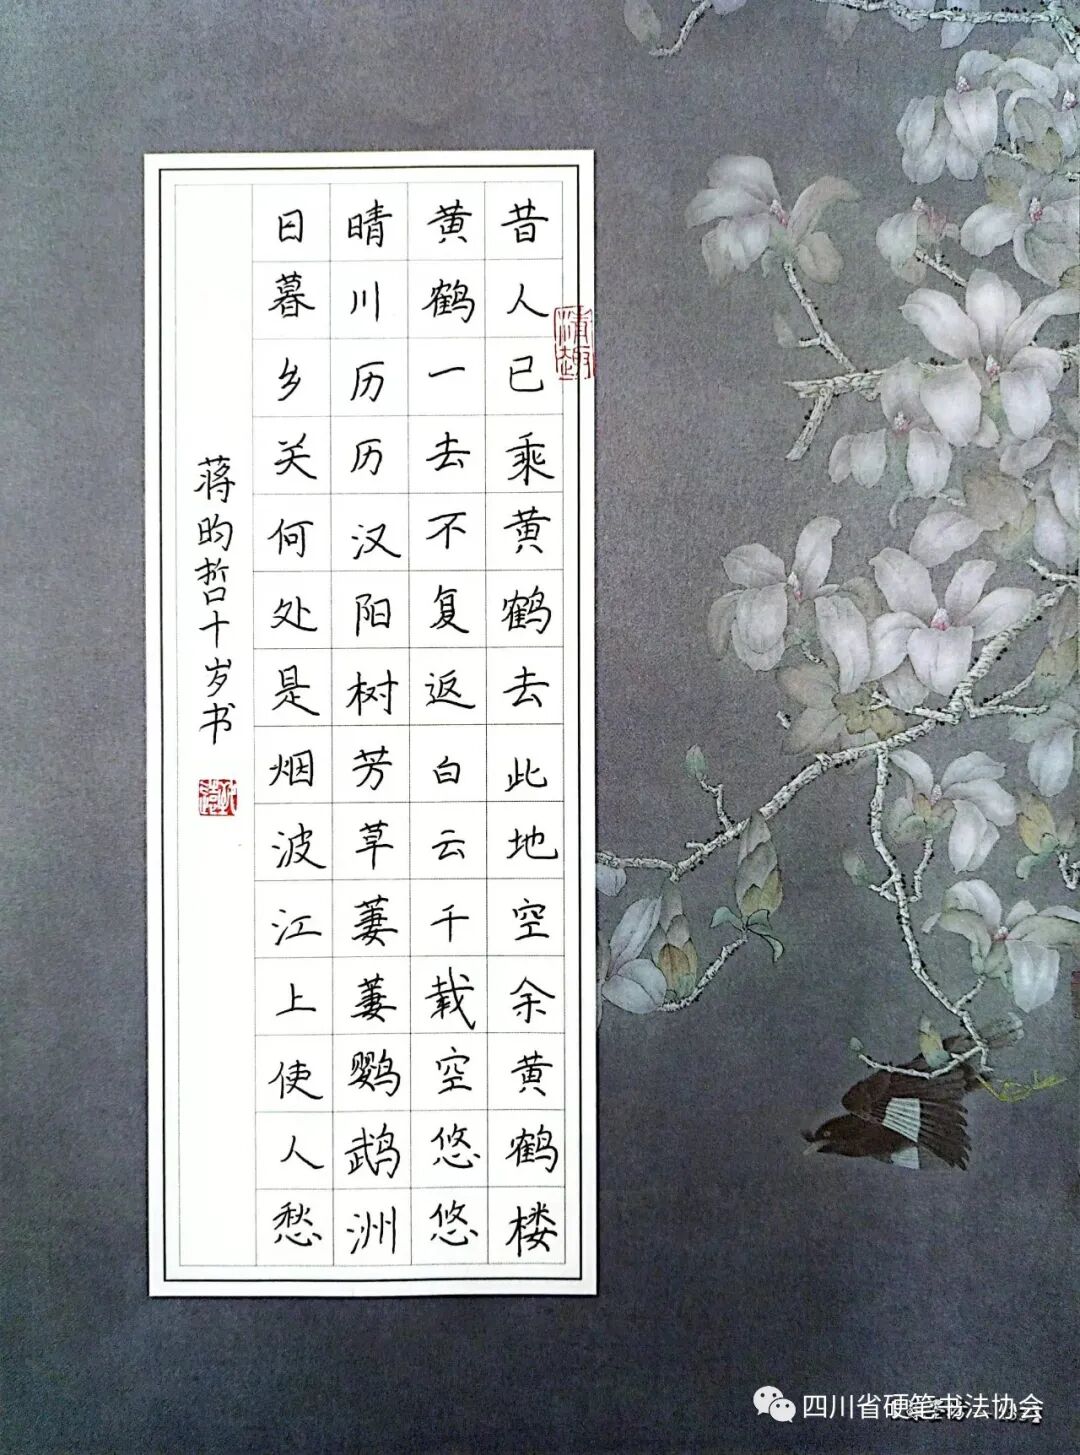 昔人已乘黄鹤去此地空余黄鹤楼
黄鹤一去不复返白云千载空悠悠
晴川历历汉阳树芳草萋萋鹦鹉洲
日暮乡关何处是烟波江上使人愁
蒋昀哲十岁书
情趣
四川省硬笔书法协会